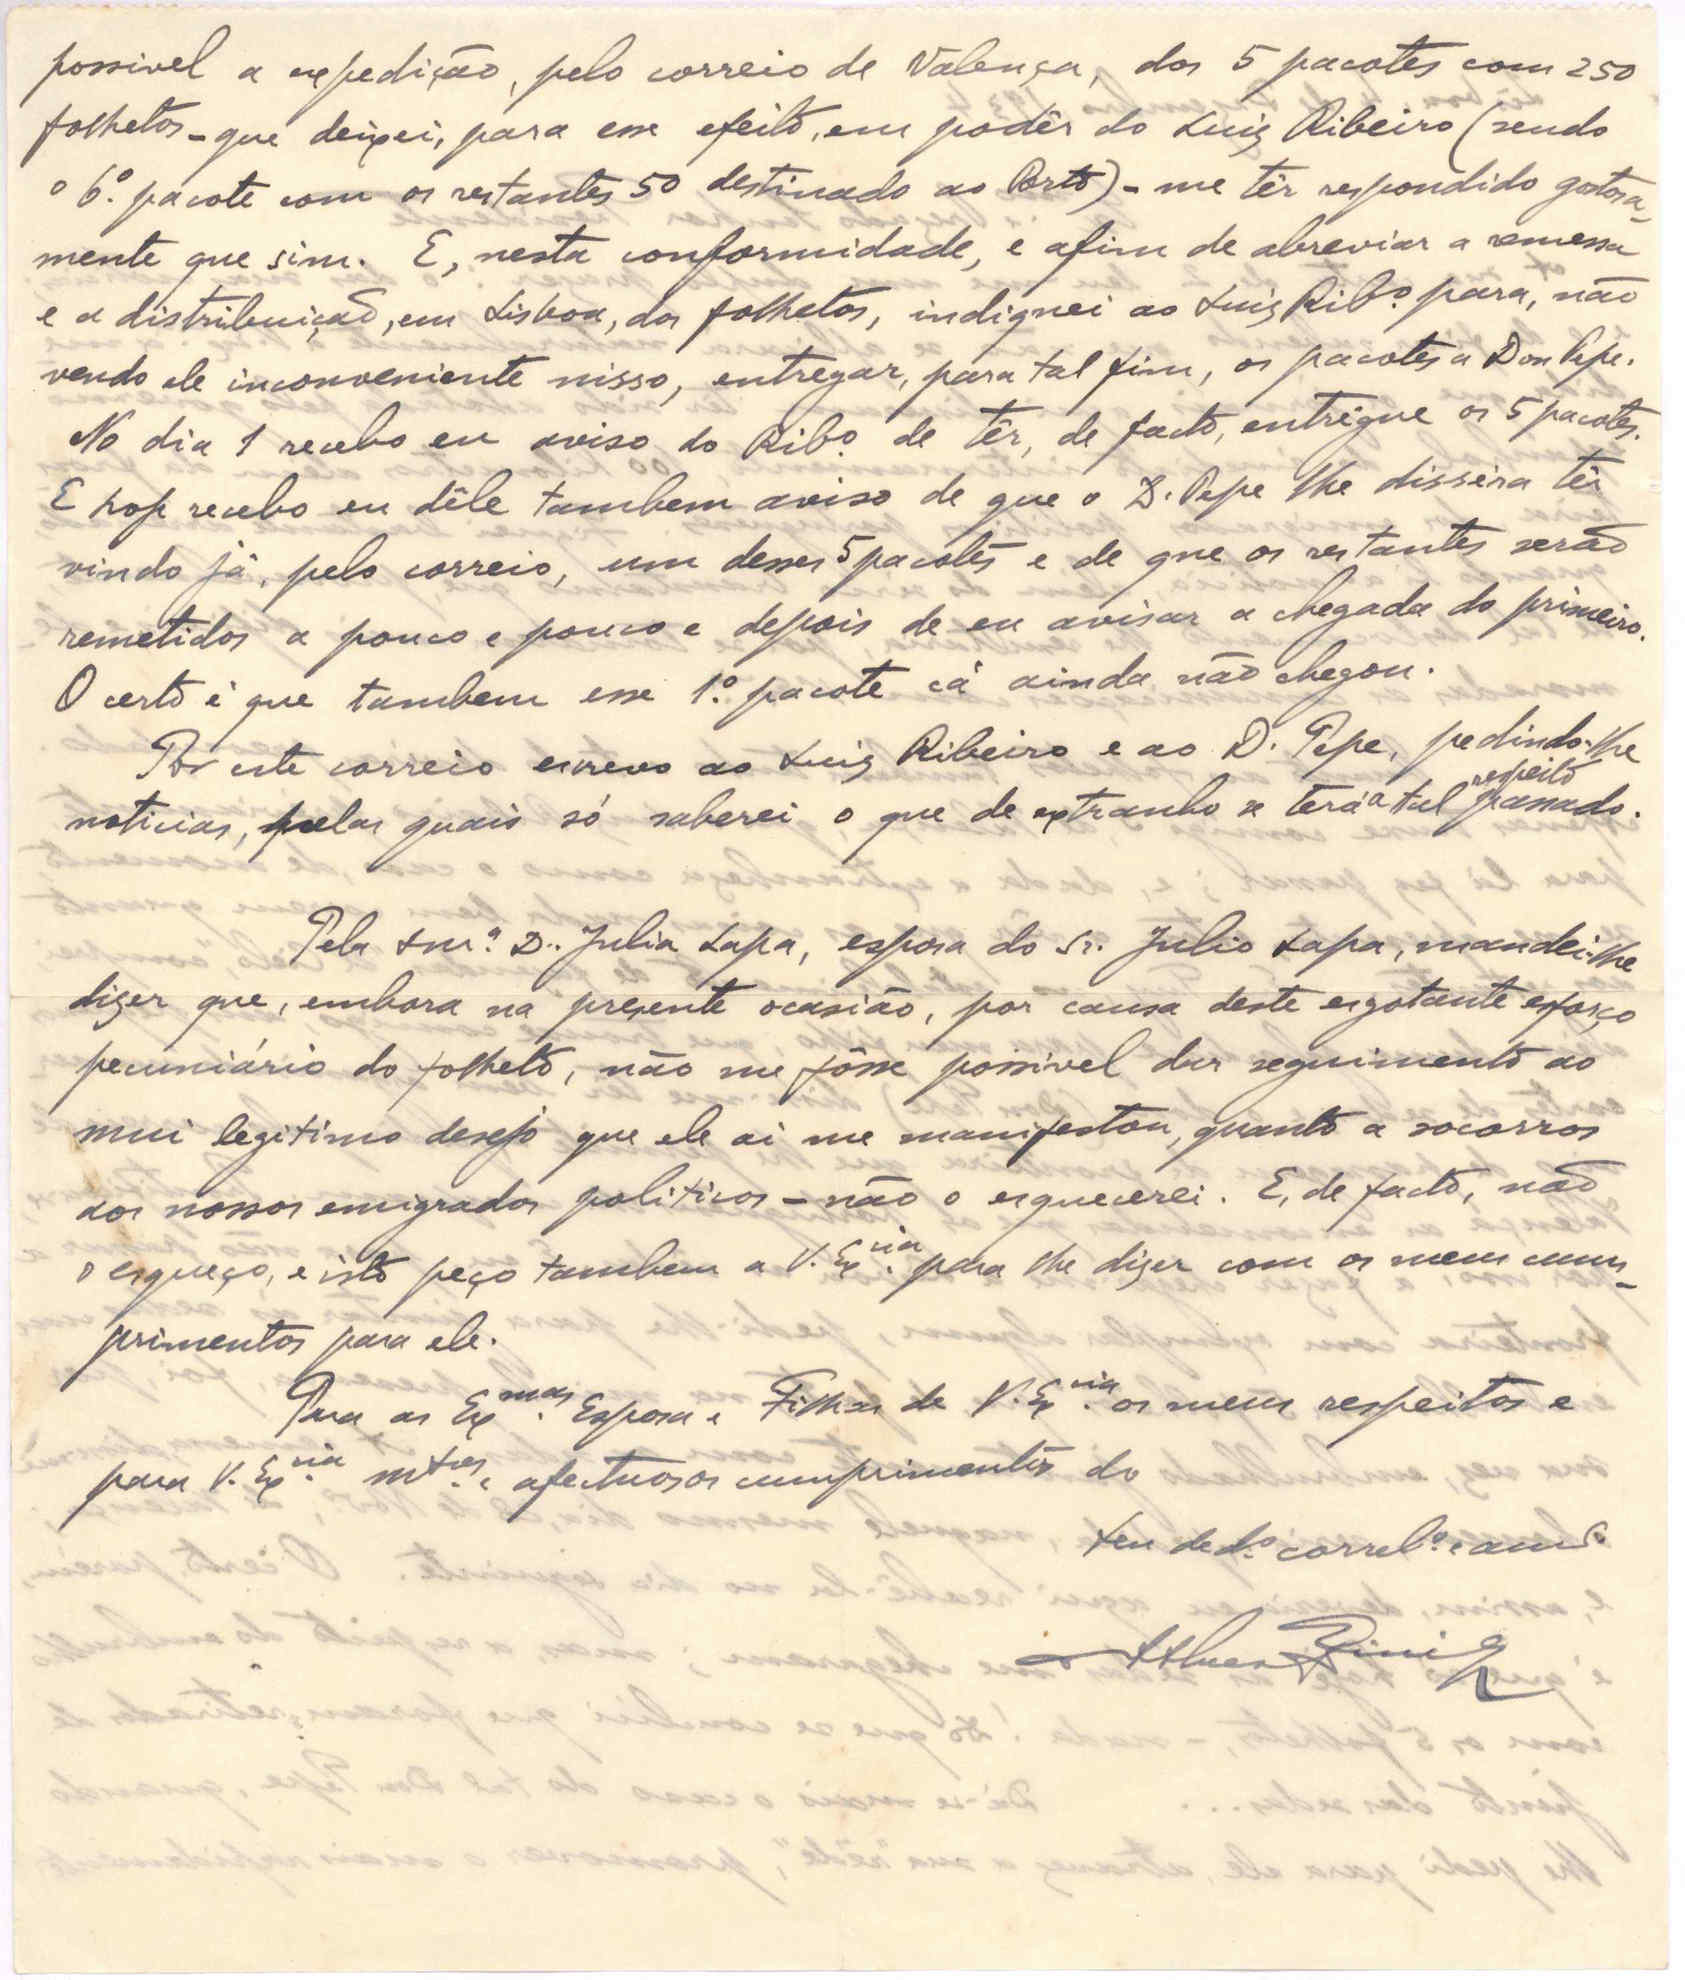 possivel a expedição, pelo correio de Valença, dos 5 pacotes com 250
folhetos - que deixei, para esse efeito, em podêr do Luiz Ribeiro (sendo
o 6.º pacote com os restantes 50 destinado ao Porto) - me têr respondido gostosa-
mente que sim. E, nesta conformidade, e afim de abreviar a remessa
e a distribuição, em Lisboa, dos folhetos, indiquei ao Luiz Rib.º para, não
vendo ele inconveniente nisso, entregar, para tal fim, os pacotes a Don Pepe.
No dia 1 recebo eu aviso do Rib.º de têr, de facto, entregue os 5 pacotes.
E hoje recebo eu dêle tambem aviso de que o D. Pepe lhe dissera têr
vindo já, pelo correio, um desses 5 pacotes e de que os restantes serão
remetidos a pouco e pouco e depois de eu avisar a chegada do primeiro.
O certo é que tambem esse 1.º pacote cá ainda não chegou.
Por este correio escrevo ao Luiz Ribeiro e ao D. Pepe, pedindo-lhe
noticias, pelas quais só saberei o que de extranho se terá a tal respeito passado.
Pela Snr.ª D. Julia Lapa, esposa do Sr. Julio Lapa, mandei-lhe
dizer que, embora na presente ocasião, por causa deste esgotante esforço
pecuniário do folheto, não me fôsse possivel dar seguimento ao
mui legitimo desejo que ele ai me manifestou, quanto a socorros
aos nossos emigrados politicos - não o esquecerei. E, de facto, não
o esqueço, e isto peço tambem a V. Ex.cia para lhe dizer com os meus cum-
primentos para ele.
Para as Ex.mas Esposa e Filhas de V. Ex.cia os meus respeitos e
para V. Ex.cia m.tos e afectuosos cumprimentos do
Seu ded.º correl.º e am.º